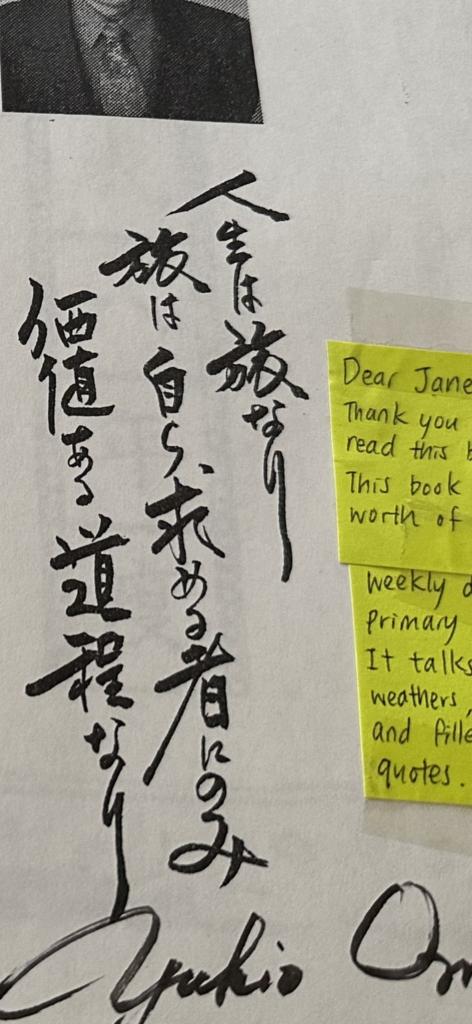 人生は旅なり
旅は自ら求める者にのみ
価値ある道程なり
Yukio
Dear Jane
Thank you
read this
This book
worth of
weekly
primary
It talks
weathers,
and
quotes.